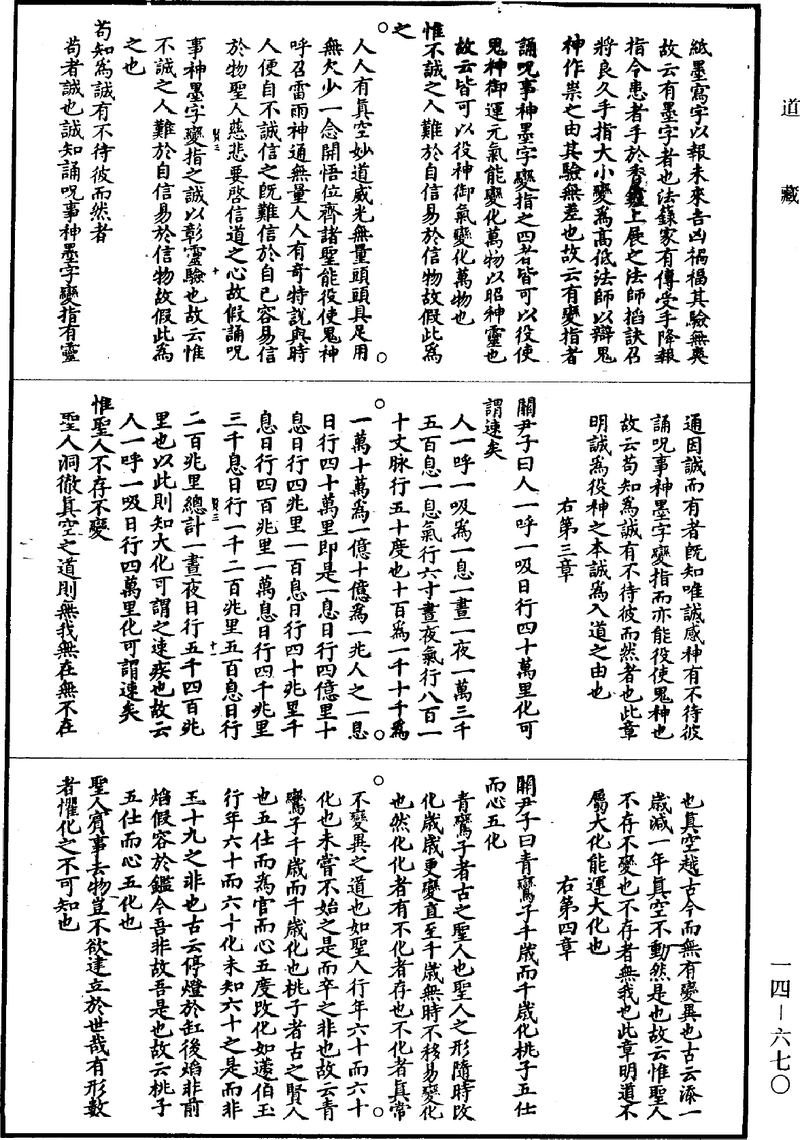 道藏
紙墨寫字以報未來吉凶禍福其驗無爽
故云有墨字者也法籙家有傳受手降報
指令患者手於香爐上展之法師掐訣召
將良久手指大小變為高低法師以辯鬼
神作祟之由其驗無差也故云有變指者
誦呪事神墨字變指之四者皆可以役使
鬼神御運元氣能變化萬物以昭神靈也
故云皆可以役神御氣變化萬物也
惟不誠之人難於自信易於信物故假此為
之
人人有真空妙道威光無量頭頭具足用
無欠少一念開悟位齊諸聖能役使鬼神
呼召雷雨神通無量人人有奇特說與時
人便自不誠信之既難信於自己容易信
於物聖人慈悲要啓信道之心故假誦呪
事神墨字變指之誠以彰靈驗也故云惟
不誠之人難於自信易於信物故假此為
之也
苟知為誠有不待彼而然者
苟者誠也誠知誦呪事神墨字變指有靈
通因誠而有者既知唯誠感神有不待彼
誦呪事神墨字變指而亦能役使鬼神也
故云苟知為誠有不待彼而然者也此章
明誠為役神之本誠為入道之由也
右第三章
關尹子曰人一呼一吸日行四十萬里化可
謂速矣
人一呼一吸為一息一晝一夜一萬三千
五百息一息氣行六寸晝夜氣行八百一
十丈脉行五十度也十百為一千十千為
一萬十萬為一億十億為一兆人之一息
日行四十萬里即是一息日行四億里十
息日行四兆里一百息日行四十兆里千
息日行四百兆里一萬息日行四千兆里
三千息日行一千二百兆里五百息日行
二百兆里總計一晝夜日行五千四百兆
里也以此則知大化可謂之速疾也故云
人一呼一吸日行四萬里化可謂速矣
惟聖人不存不變
聖人洞徹真空之道則無我無在無不在
也真空越古今而無有變異也古云添一
歲減一年真空不動然是也故云惟聖人
不存不變也不存者無我也此章明道不
屬大化能運大化也
右第四章
關尹子曰青鸞子千歲而千歲化桃子五仕
而心五化
青鸞子者古之聖人也聖人之形隨時改
化歲歲更變直至千歲無時不移易變化
也然化化者有不化者存也不化者真常
不變異之道也如聖人行年六十而六十
化也未嘗不始之是而卒之非也故云青
鸞子千歲而千歲化也桃子者古之賢人
也五仕而為官而心五度改化如蘧伯玉
行年六十而六十化未知六十之是而非
五十九之非也古云停燈於缸後焰非前
焰假容於鑑今吾非故吾是也故云桃子
五仕而心五化也
聖人賓事去物豈不欲建立於世哉有形數
者懼化之不可知也
賢三
十
賢三
十一
一四－六七〇